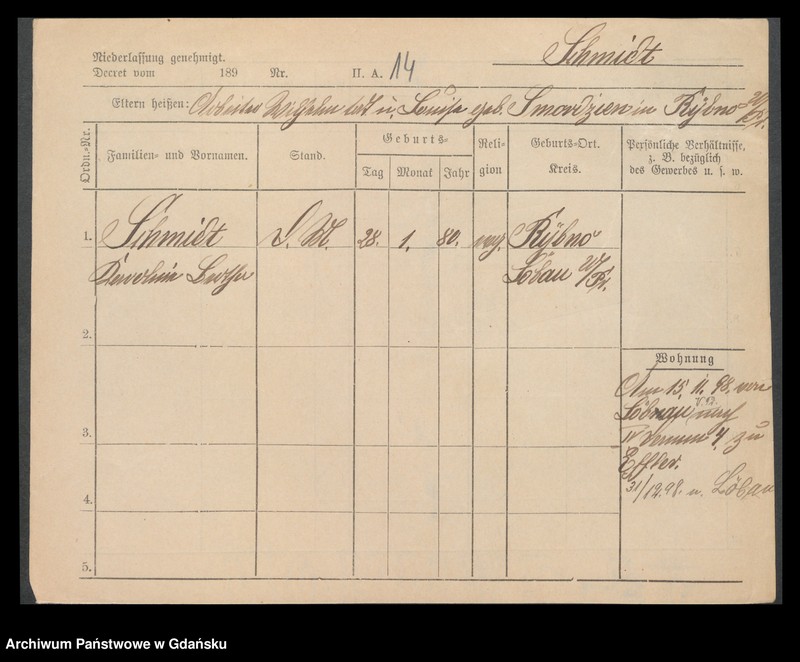 Schmidt
Niederlassung genehmigt.
Decret vom 189 Nr. II. A. 14
Eltern heißen: Arbeiter Wilhelm tot u. Louise geb. Smordzien in Rÿbno W/Pr.
Ordn.-Nr.
Familien- und Vornamen.
Stand.
Geburts-
Tag Monat Jahr
Reli-
gion
Geburts-Ort.
Kreis.
Persönliche Verhältnisse,
z. B. bezüglich
des Gewerbes u. s. w.
1. Schmidt D. M. 28. 1. 80. evg. Rÿbno
Karoline Bertha Löbau W/Pr.
2.
Wohnung
Am 15. 11. 98. von
Löbau nach
IV Damm 4 zu
Effler.
31/12.98. n. Löbau
3.
4.
5.
Archiwum Państwowe w Gdańsku